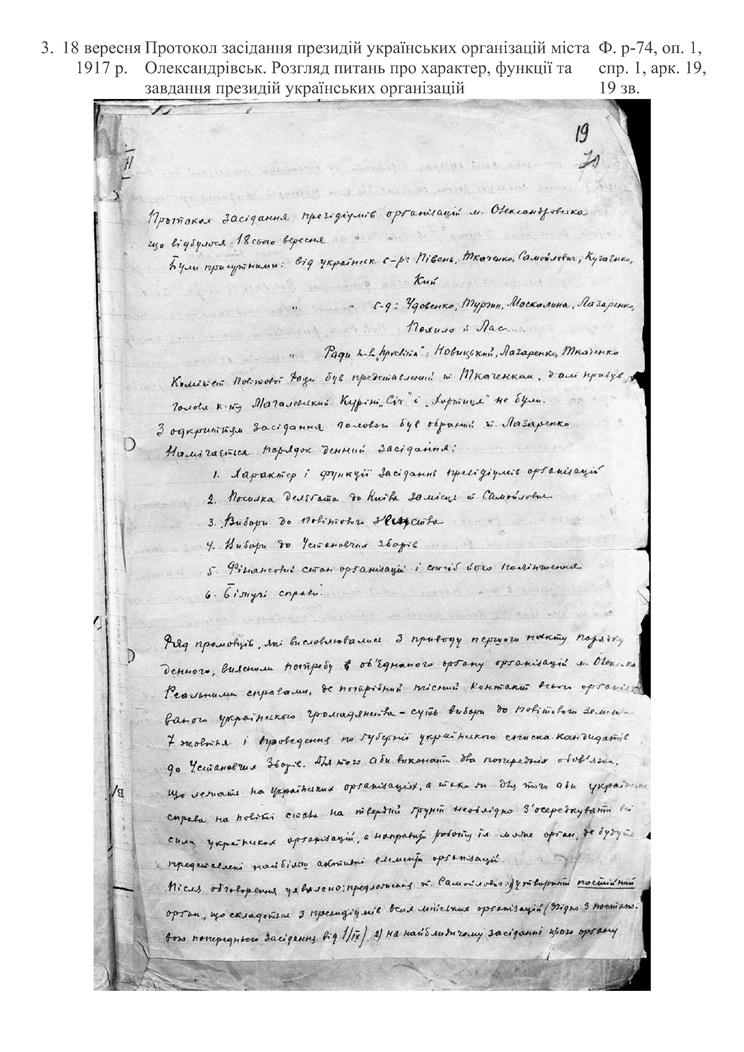 3. 18 вересня 1917 р. Протокол засідання президій українських організацій міста Олександрівськ. Розгляд питань про характер, функції та завдання президій українських організацій Ф. р-74, оп. 1, спр. 1, арк. 19, 19 зв.
19
70
Протокол засідання президіумів організацій м. Олександровська
що відбулося 18 сього вересня
Були присутними: від українськ с-р: Півень, Ткаченко, Самойлович, Кугаенко,
Кий
" " с-д: Удовенко, Тургин, Москалина, Лазаренко,
Похило й
" Ради т-ва „Просвіта": Новицький, Лазаренко, Ткаченко
Комітет Повітової Ради був представлений т Ткаченком, далі прибув
голова к-ту Магаловский. Куріні „Січ" і „Хортиця" не були.
З одкриттям засідання головою був обраний т. Лазаренко
Намічається порядок денний засідання:
1. Характер і функції засіданнь президіумів організацій
2. Посилка делегата до Київа замісць т Самойловича
3. Вибори до повітового земства
4. Вибори до Установчих Зборів
5. Фінансовий стан організацій і спосіб його поліпшення
6. Біжучі справи.
Ряд промовців, які висловлювалися з приводу першого пункту порядку
денного, вияснили потребу в об'єднаного органу організацій м.
Реальними справами, де потрібний тісний контакт всього
ваного українського громадянства – суть вибори до повітового земства
7 жовтня і впроведення по губернії українського списка кандидатів
до Установчих Зборів. Для того аби виконати два попередніх обов'язки,
що лежать на українських організаціях, а також для того аби українська
справа на повіті стала на твердий грунт необхідно з'осередкувати всі
сили українських організацій, а направить роботу їх може орган, де будуть
представлені найбільш активні елементи організацій
Після обговорення ухвалено: предложення т. Самойловича: 1) утворити постійний
орган, що складається з президіумів всих міських організацій (згідно з постано-
вою попереднього засідання від 1/IX), 2) на найближчому засіданні цього органу